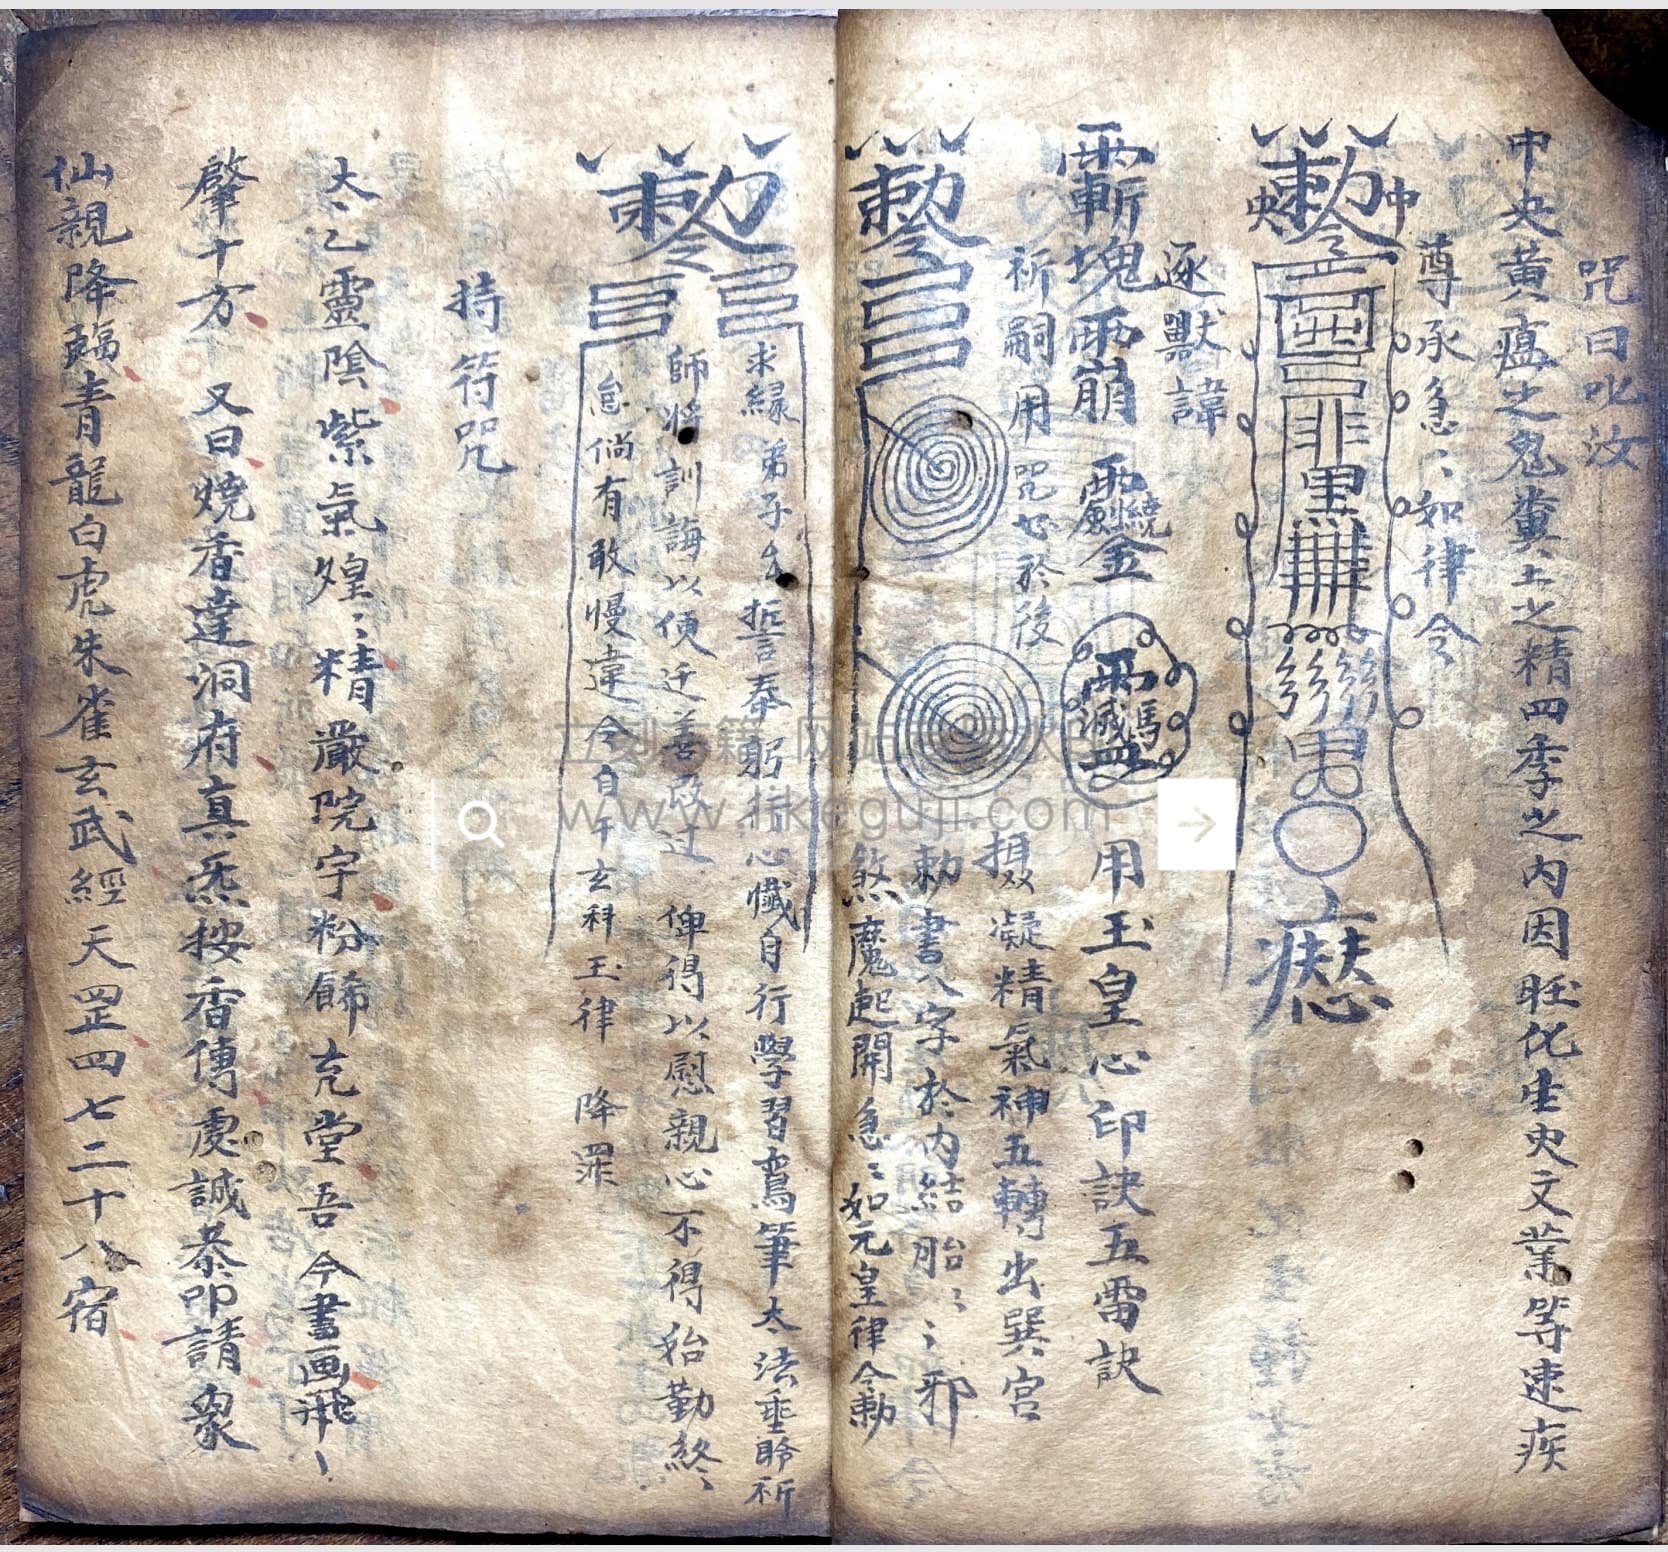 咒曰叱汝
中央黃瘟之鬼糞土之精四季之內因旺化生史文業等速疾
尊承急〻如律令
中
勅令
央
非
黑
男
逐獸諱
塊
崩
金
用玉皇心印訣五雷訣
祈嗣用咒芯於後
攝凝精氣神五轉出巽宮
勅書入字於內結胎〻〻邪
煞魔起開急〻如元皇律令勅
勅令
勅令
求緣弟子厶誓奉躬抒心懺自行學習鸞筆太法垂聆祈
師將訓誨以便迁善改过 俾得以慰親心不得殆勤終〻
怠倘有敢慢違令自干玄科玉律 降罪
持符咒
太乙靈陰紫氣煌〻精嚴院宇粉餙充堂吾今書画飛
肇十方 又曰燒香達洞府真炁按香傳虔誠恭叩請衆
仙親降臨青龍白虎朱雀玄武經天罡四七二十八宿
www.likeguji.com